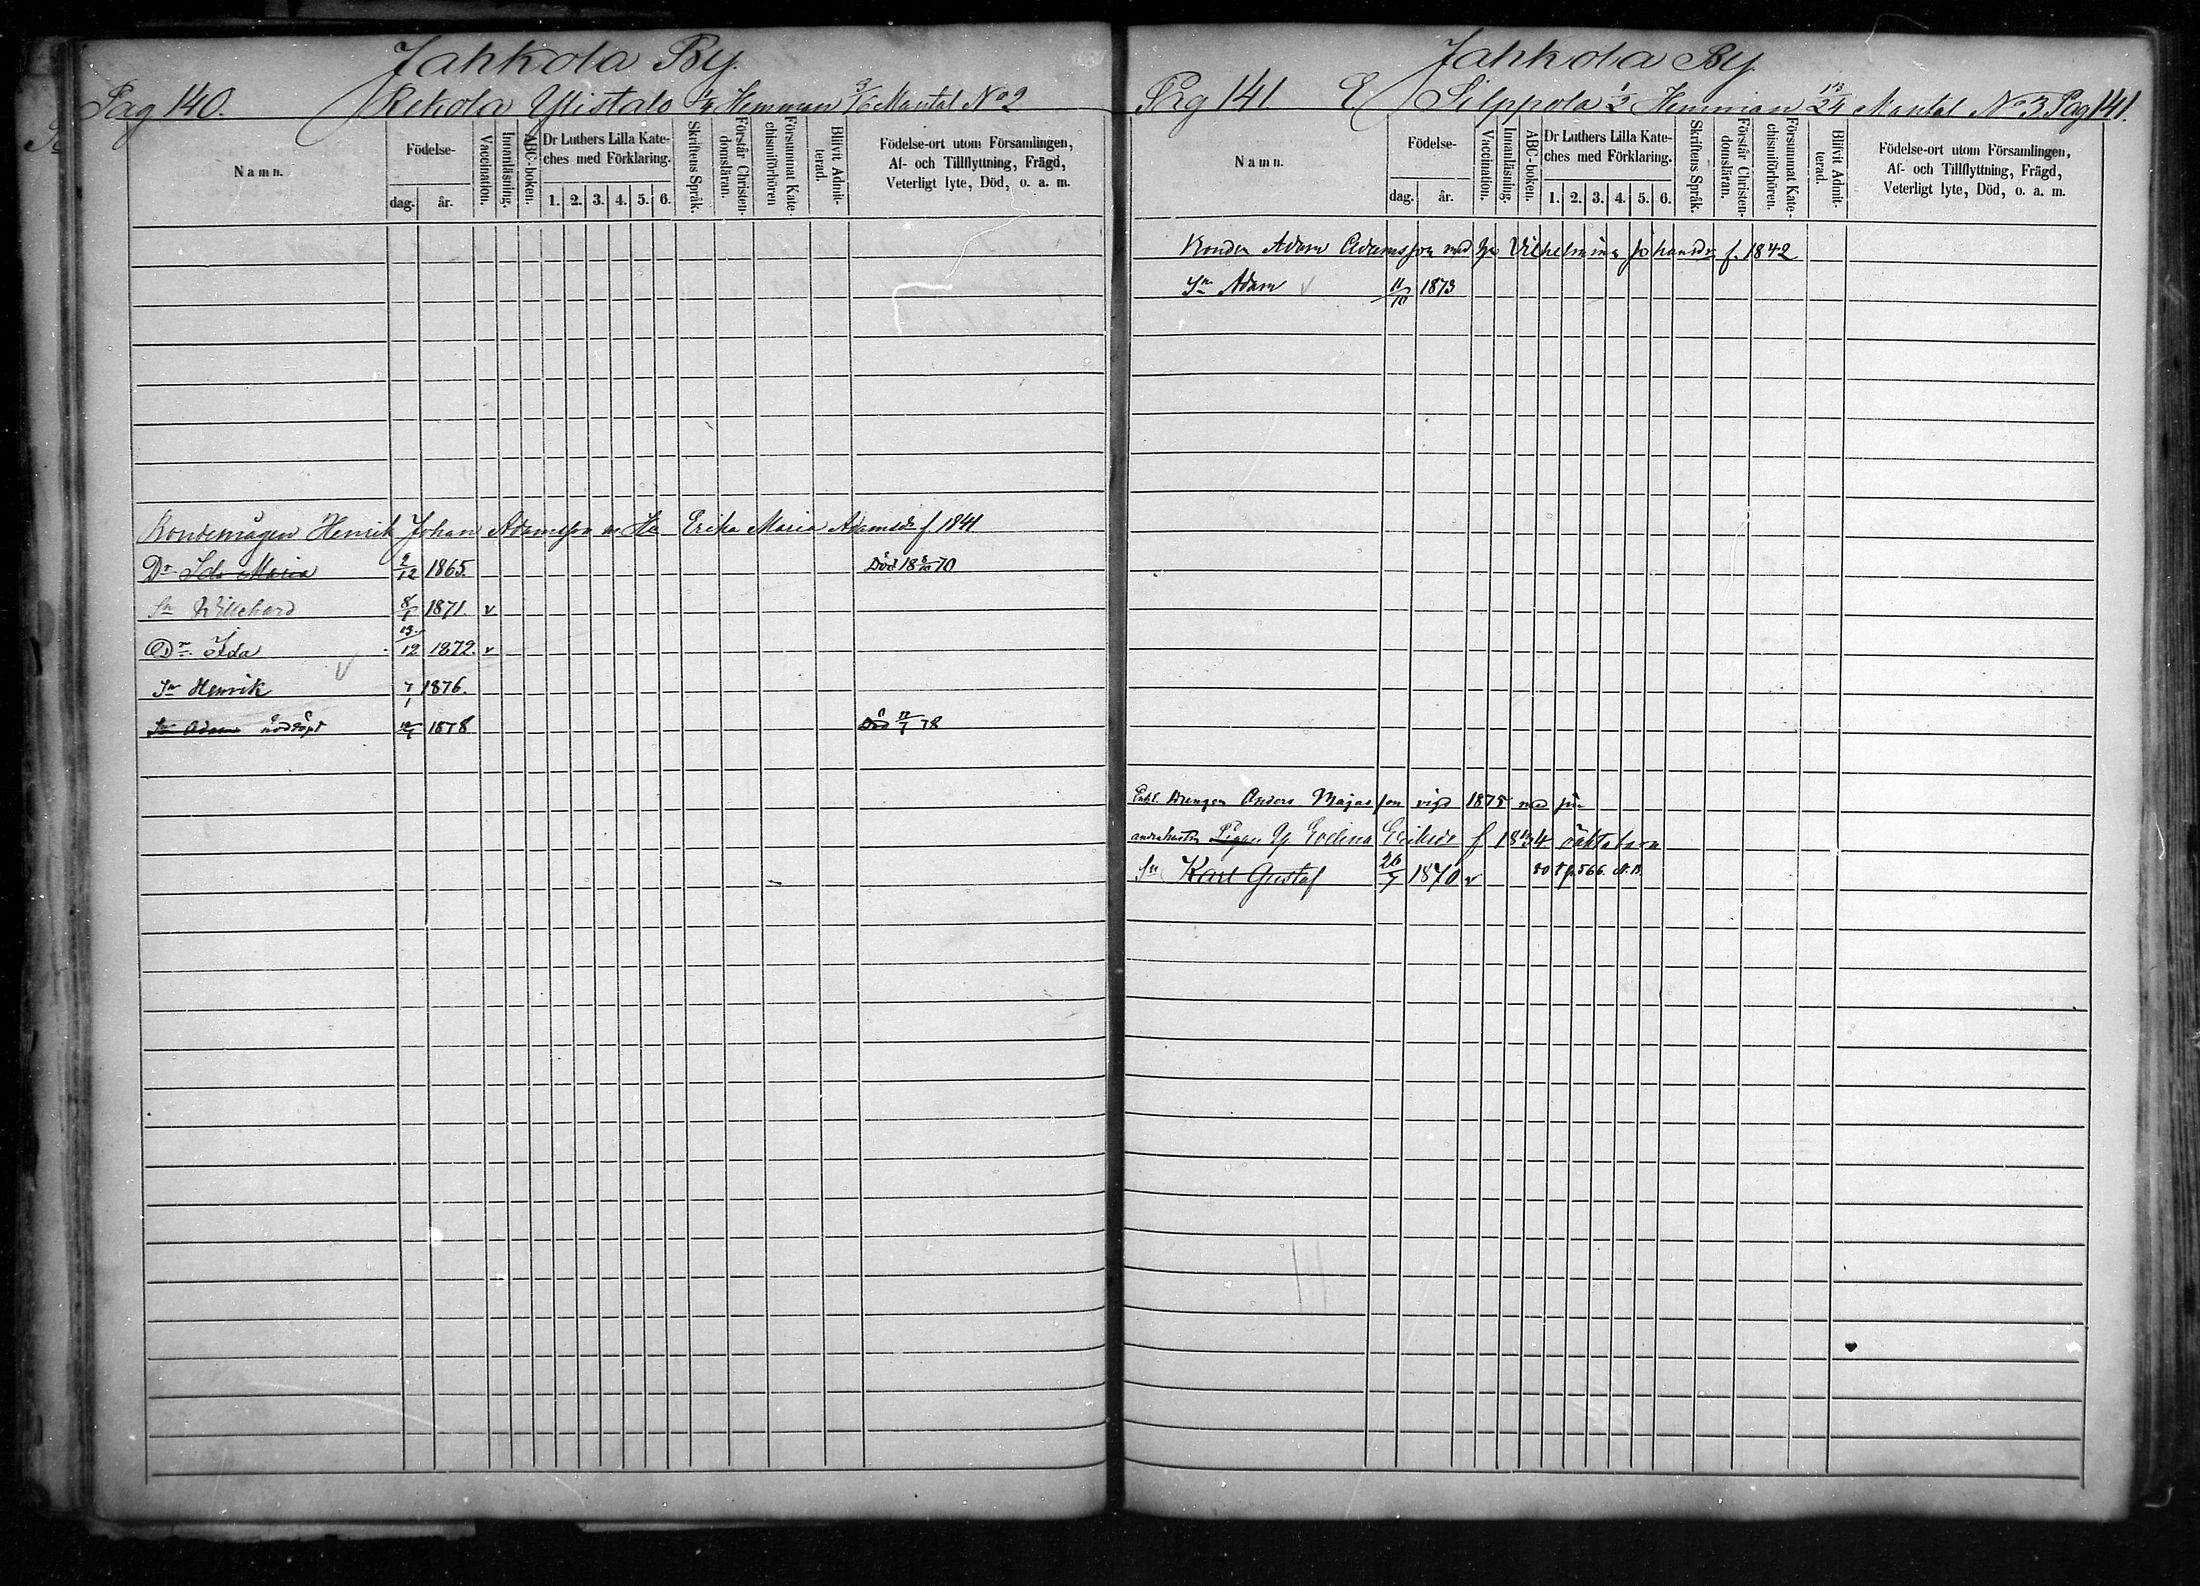 Jahkola By.
Pag 140. Rekola Ylistalo Hemman 3/16 Mantal No 2
Namn.
Födelse-
dag.
år.
Vaccination.
Innanläsning.
ABC-boken.
Dr Luthers Lilla Kate-
ches med Förklaring.
1. 2. 3. 4. 5. 6.
Skriftens Språk.
Förstår Christen-
domsläran.
Försummat Kate-
chismiförhören
Blifvit Admit-
terad.
Födelse-ort utom Församlingen,
Af- och Tillflyttning, Frägd,
Veterligt lyte, Död, o. a. m.
Bondemågen Henrik Johan Adamsson Erika Maria Adamsdr f 1841
Dr Ida Maria 12 1865. Död 18 70
Sn Willehard 8/1 1871. v
Dr Ida 13/12 1872. v
Sn Henrik 7/1 1876.
Sn Adam nöddöpt 1878 Död 78
Jahkola By.
Pag 141 E Silppola 1/2 Hemman 13/24 Mantal No 3 Pag 141.
Namn.
Födelse-
dag.
år.
Vaccination.
Innanläsning.
ABC-boken.
Dr Luthers Lilla Kate-
ches med Förklaring.
1. 2. 3. 4. 5. 6.
Skriftens Språk.
Förstår Christen-
domsläran.
Försummat Kate-
chismiförhören.
Blifvit Admit-
terad.
Födelse-ort utom Församlingen,
Af- och Tillflyttning, Frägd,
Veterligt lyte, Död, o. a. m.
Bonden Adam Adamsson med Vilhelmina Johansdr f. 1842
Sn Adam 11/10 1873
Drengen Anders Majasson vigd 1875 med sin
Evelina Eriksdr f 1834
Sn Karl Gustaf 26/7 1870 v p 566. N.B.